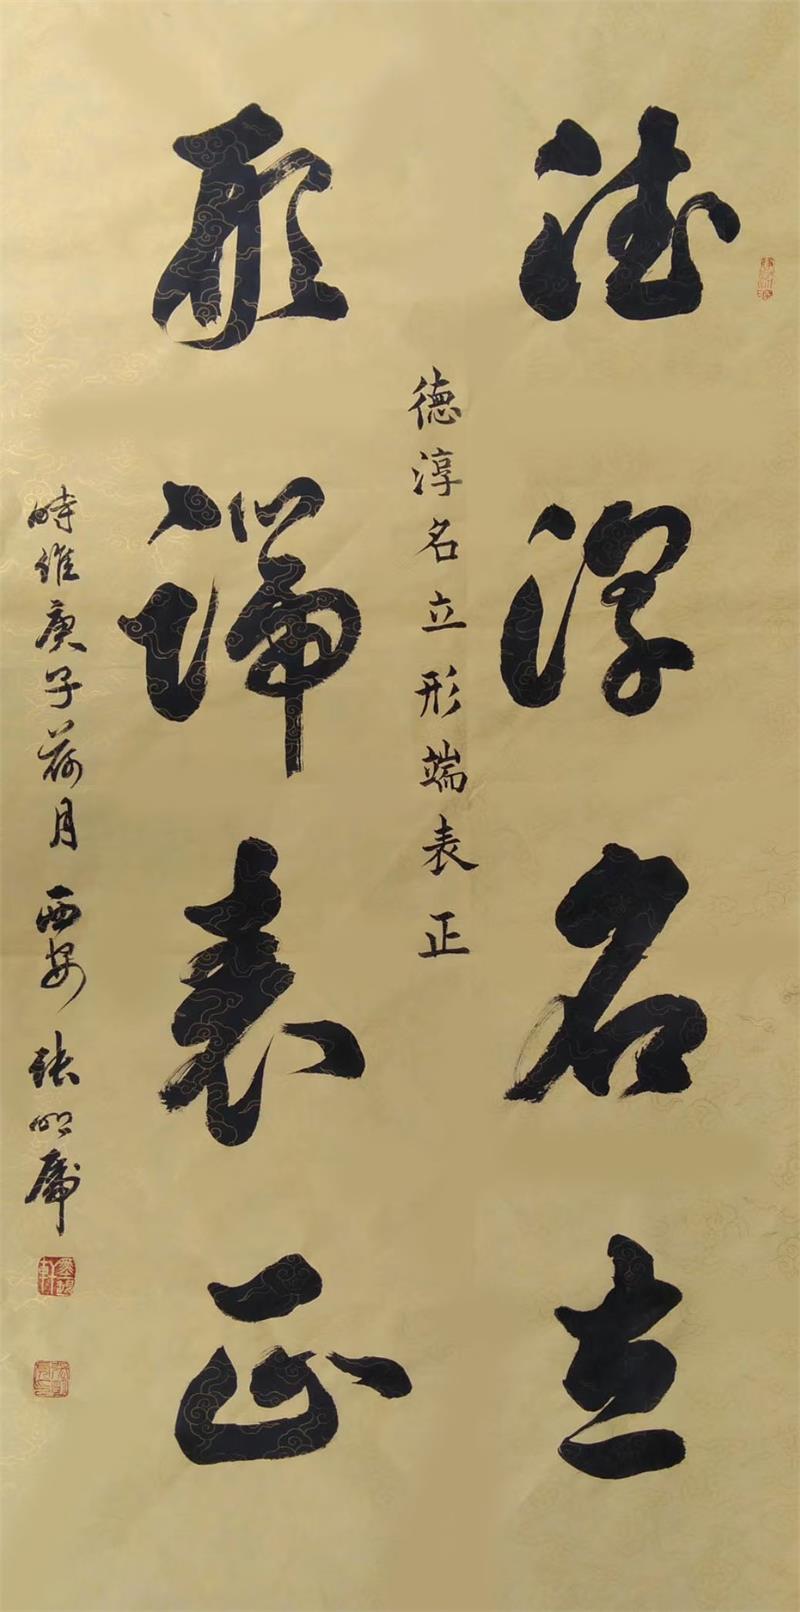 德淳名立
形端表正
德淳名立形端表正
時維庚子荷月西安張明庸